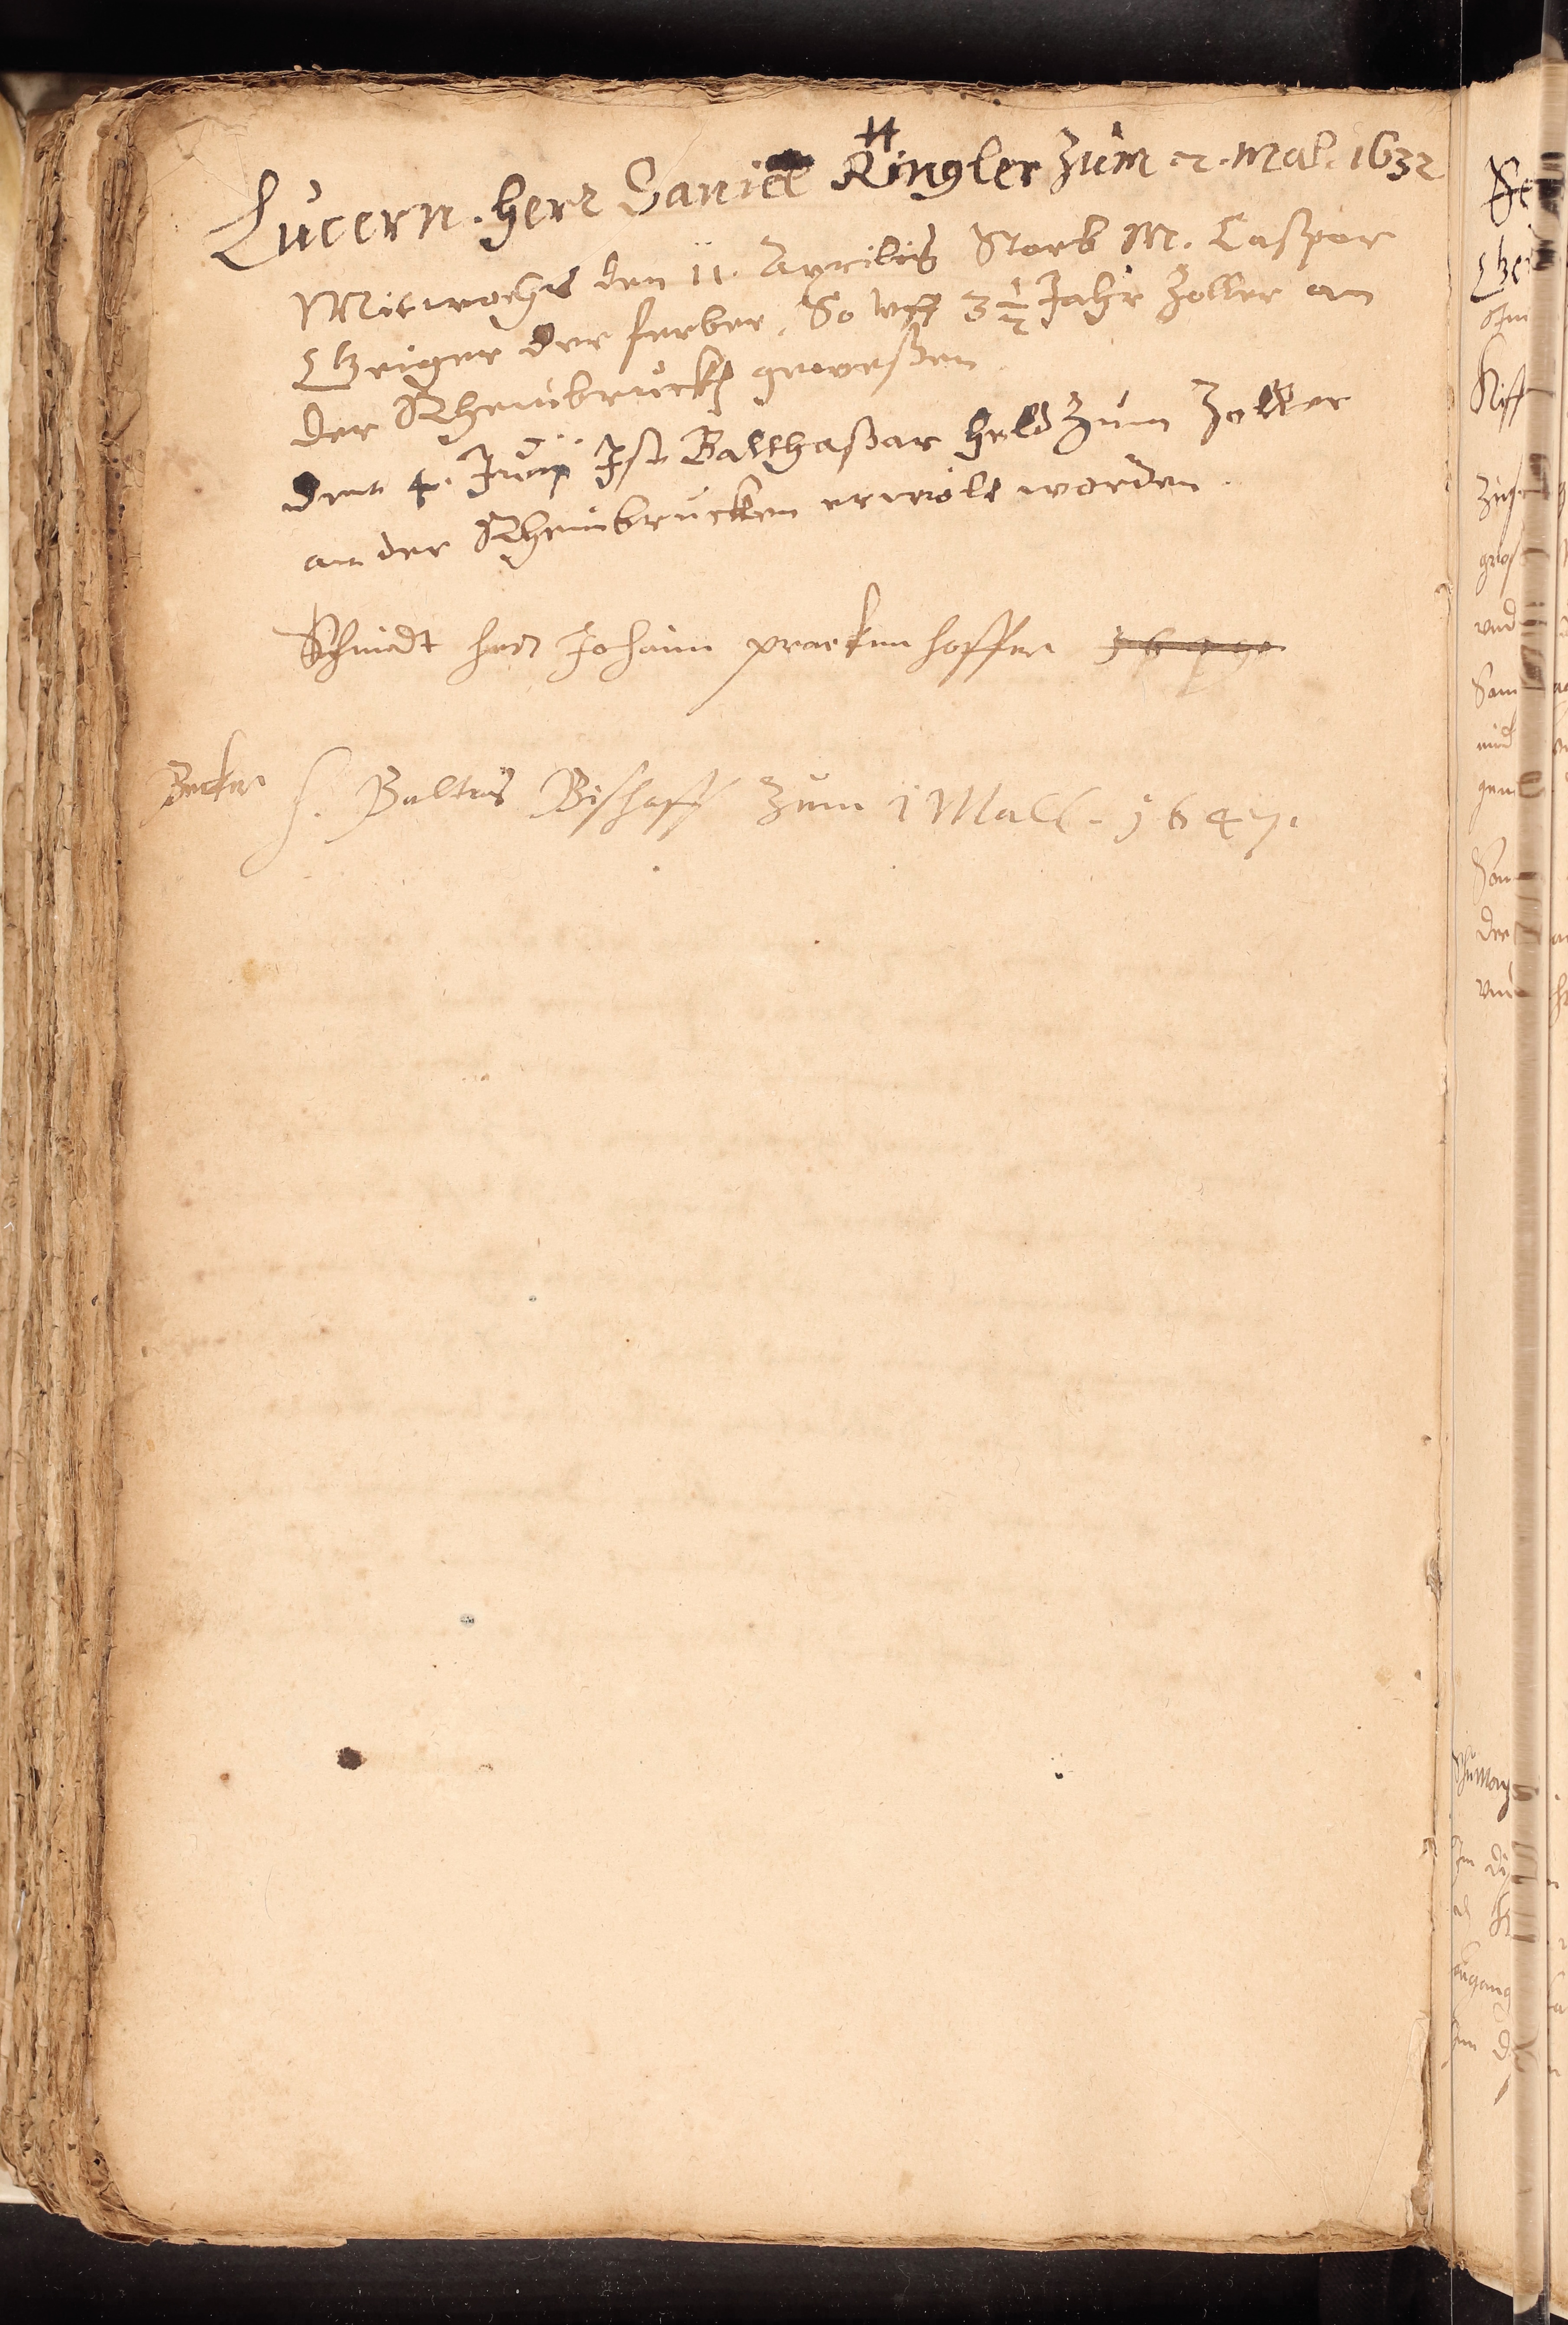 Lucern. Herr Daniel Ringler zům 2. mal. 1632
Mitwochs den 11. Aprilis Starb M. Caspar
Geiger der ferber, So vff 3 1/2 Jahr Zoller an
der Rheinbruckh geweßen
den 4. Junij Ist Balthaßar Held Zum Zoller
an der Rheinbrucken erwölt worden.
Schmidt herr Johann
Becken h. Baltas Bishoff Zum 1 Mall. 1647.